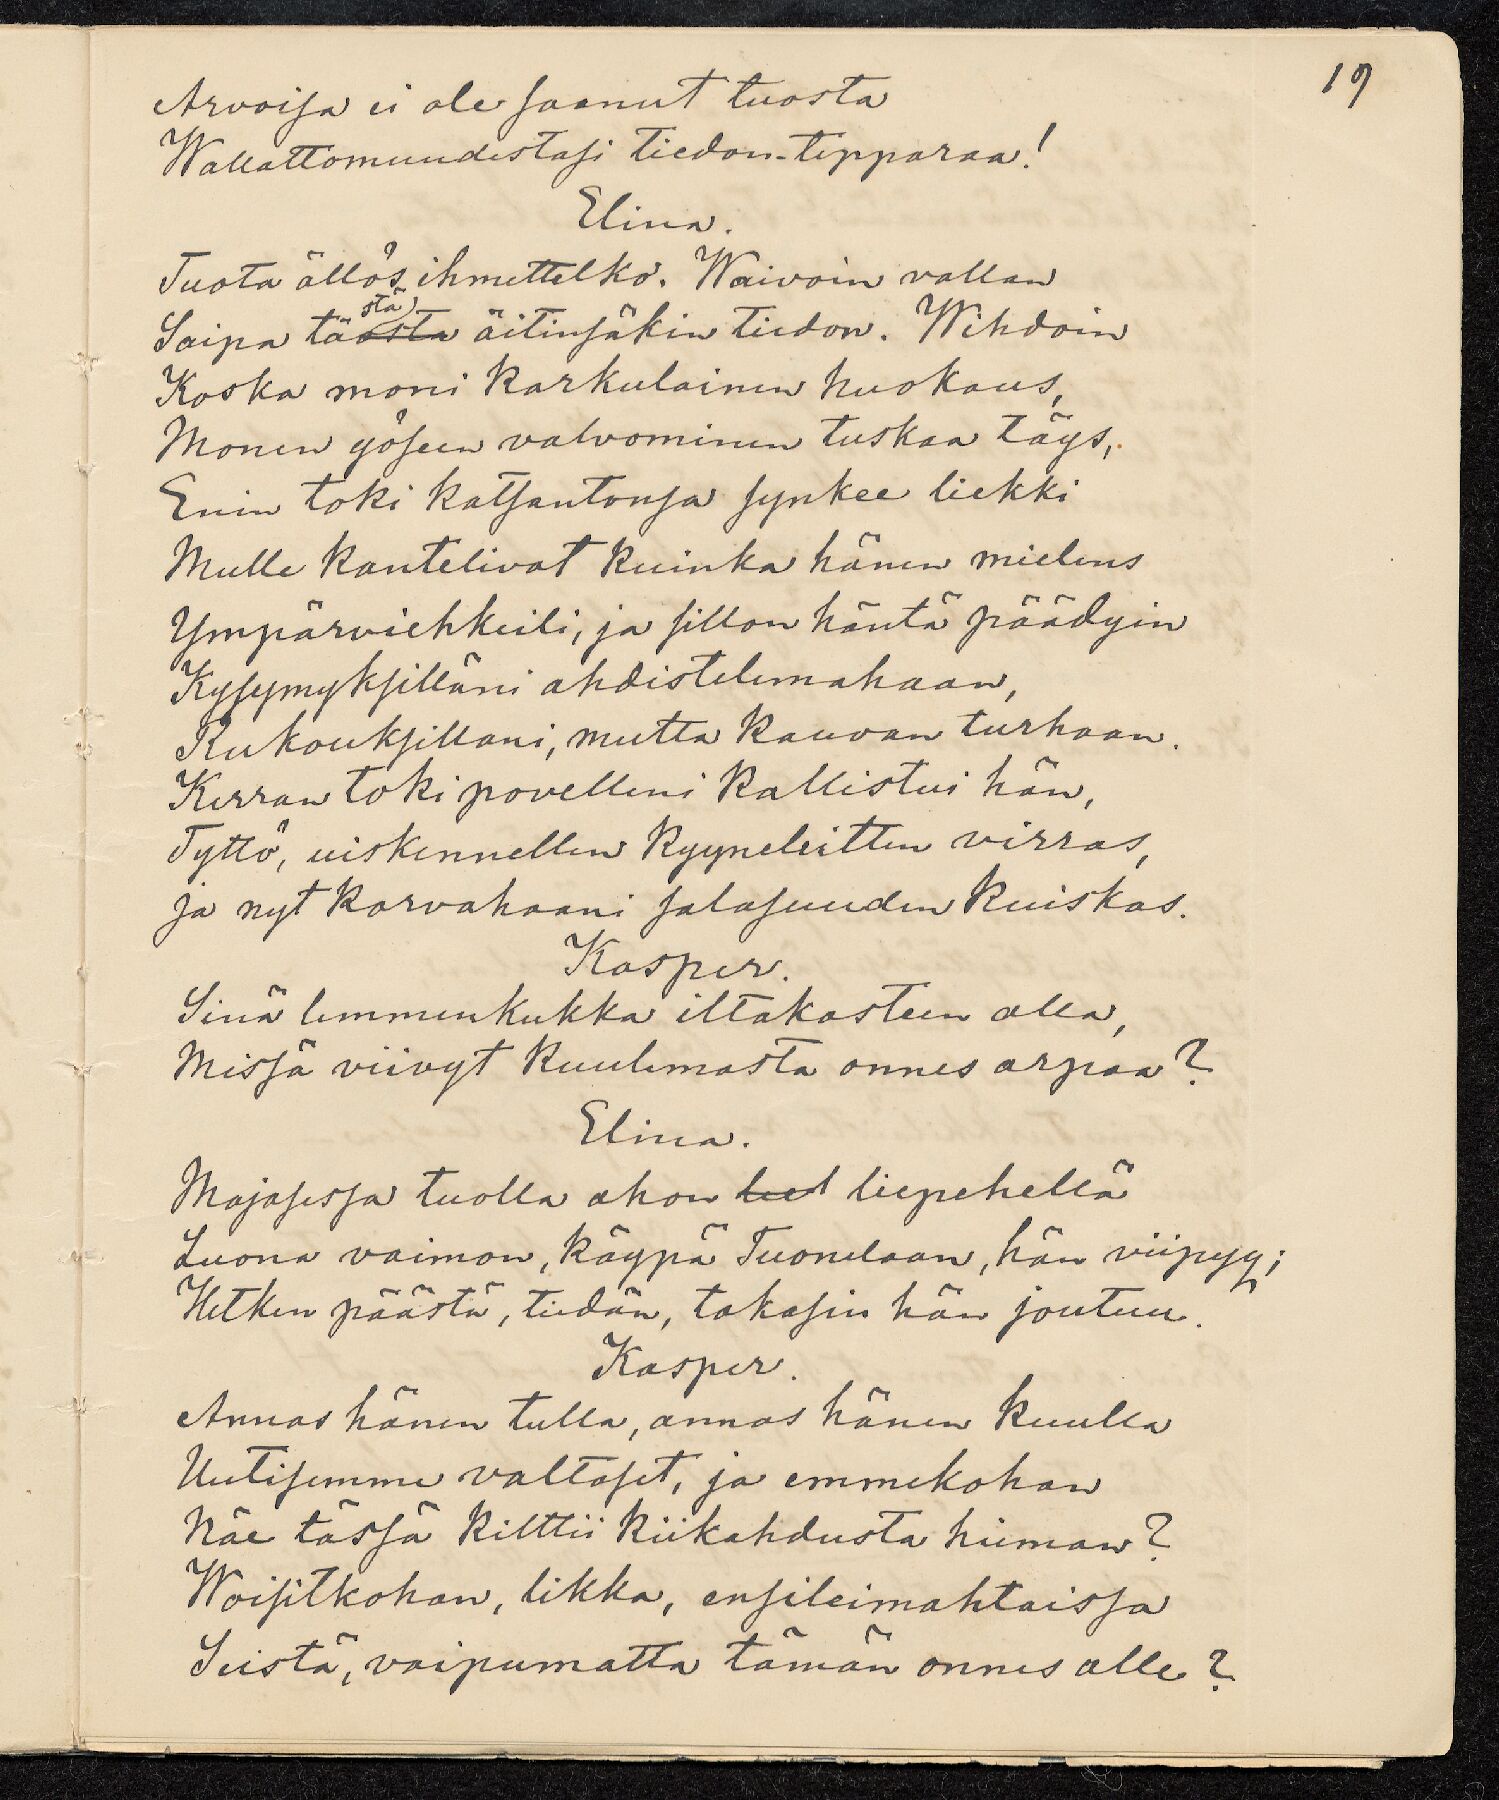 19
Arvoisa ei ole saanut tuosta
Wallattomuudestasi tiedon-tipparaa!
Elina.
Tuota ällös ihmettelkö. Waivoin vallan
stä
Saipa täosta äitinsäkin tiedon. Wihdoin
Koska moni karkulainen huokaus,
Monen yösen valvominen tuskaa täys,
Enin toki katsantonsa synkee liekki
Mulle kantelivat kuinka hänen mielens
Ympärviehkeili, ja sillon häntä päädyin
Kysymyksilläni ahdistelemahaan,
Rukouksillani, mutta kauvan turhaan.
Kerran toki povelleni kallistui hän,
Tyttö, uiskennellen kyyneleitten virras,
ja nyt korvahaani salasuuden kuiskas.
Kasper.
Sinä lemmenkukka iltakasteen alla,
Missä viivyt kuulemasta onnes arpaa?
Elina.
Majasessa tuolla ahon lied liepehellä
Luona vaimon, käypä Tuonelaan, hän viipyy;
Hetken päästä, tiedän, takasin hän joutuu.
Kasper.
Annas hänen tulla, annas hänen kuulla
Uutisemme valtaset, ja emmekohan
Näe tässä kilttii kiikahdusta hieman?
Woisitkohan, likka, ensileimahtaissa
Seistä, vaipumatta tämän onnes alle?